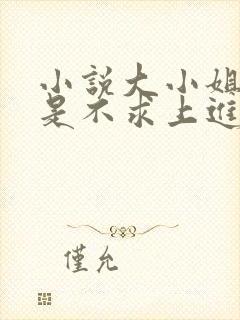 小説大小姐
是不求上進
僅允